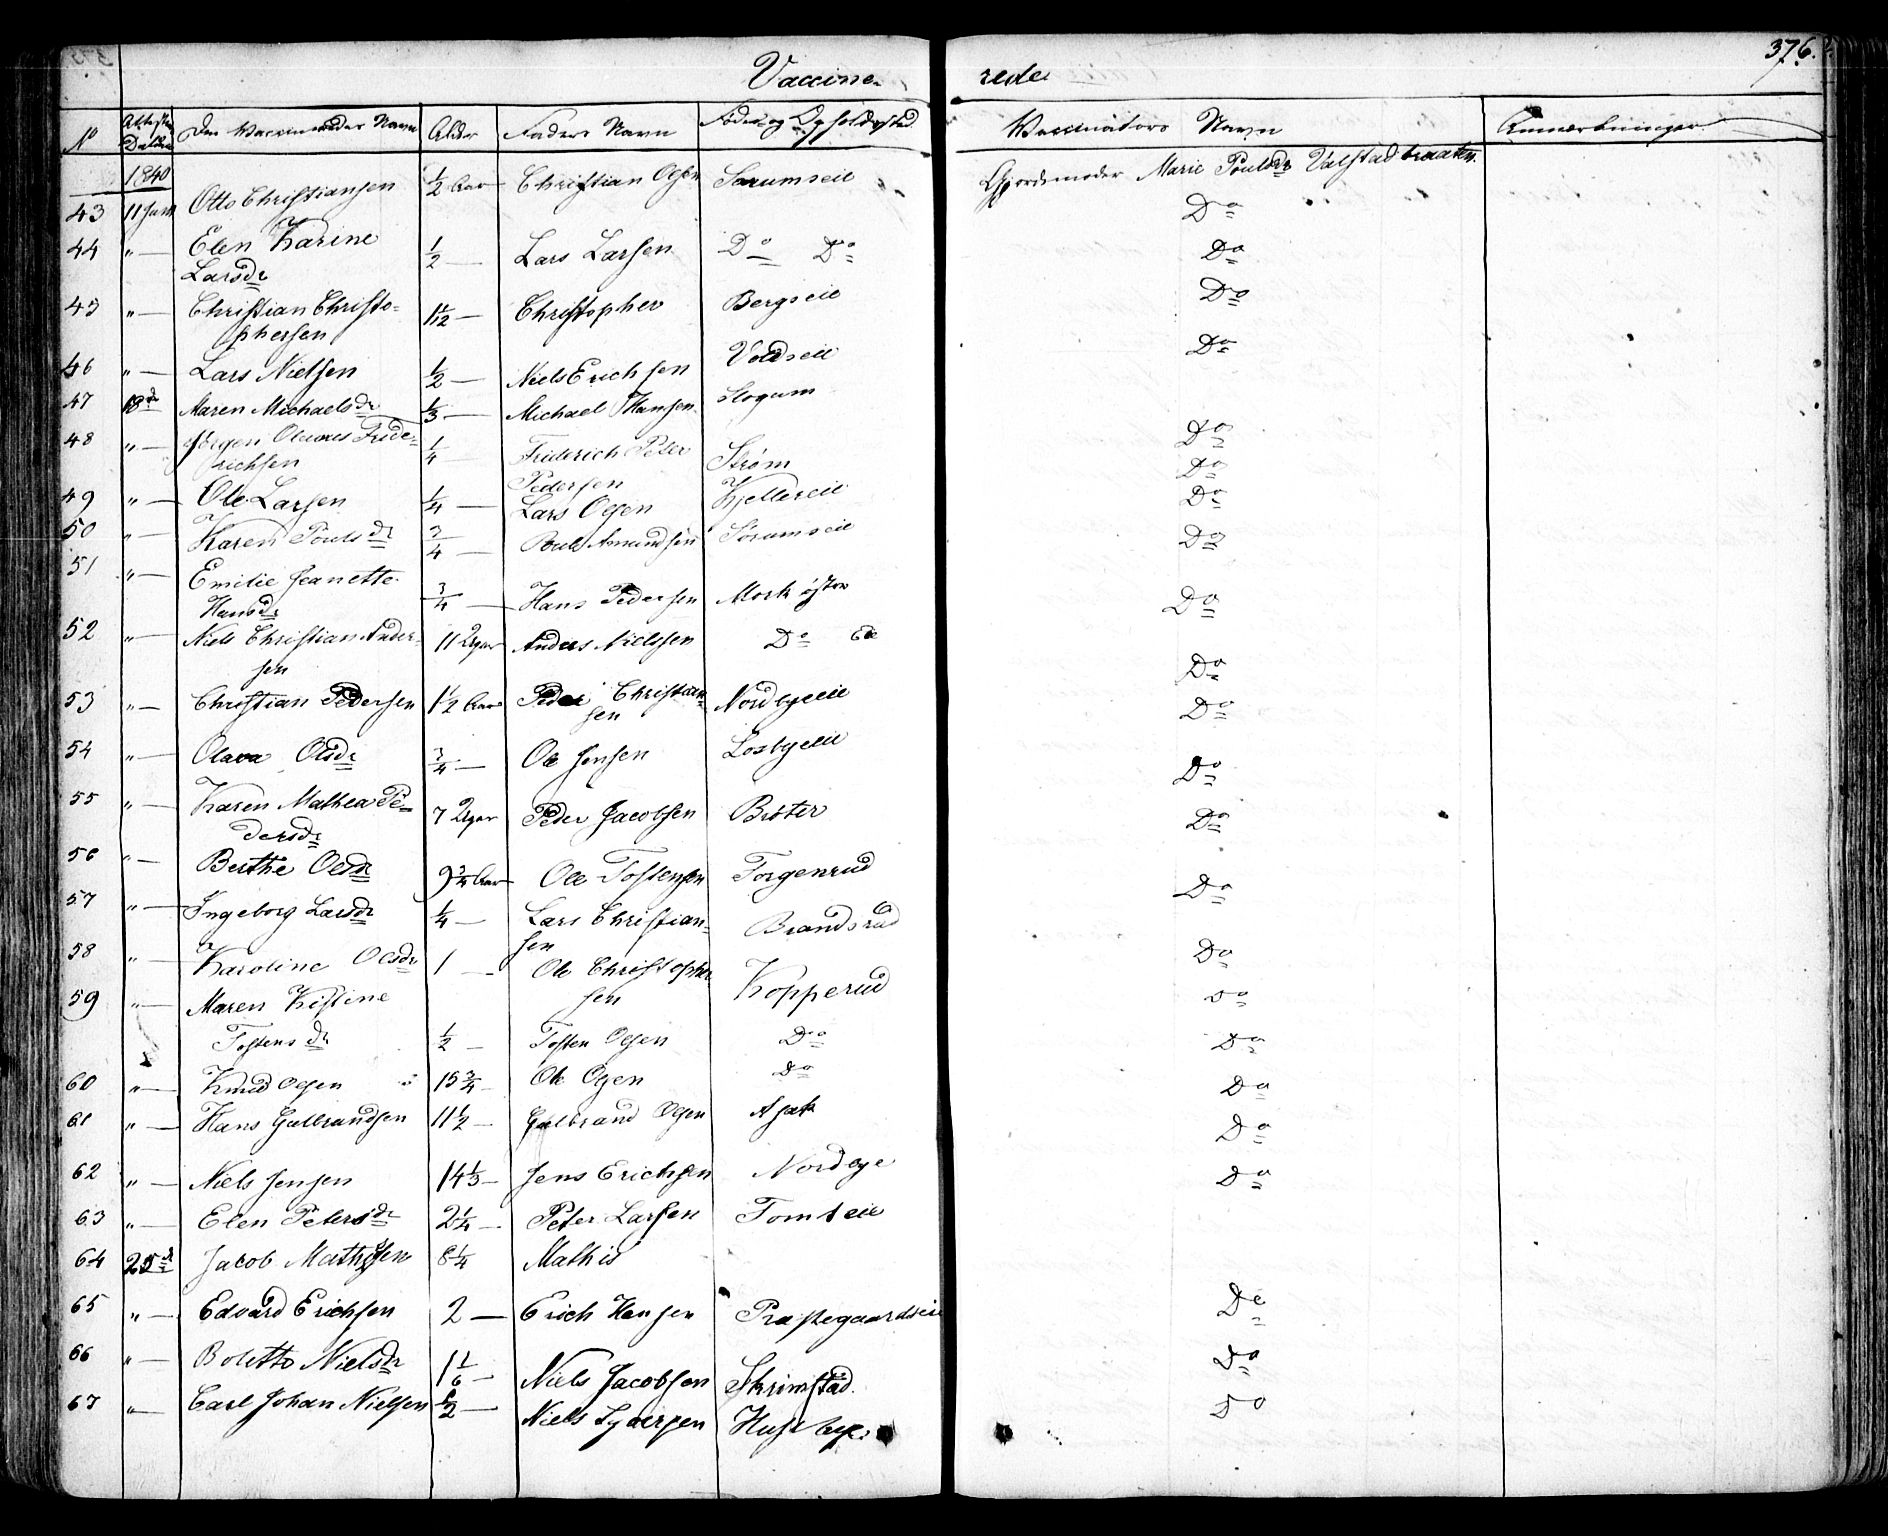 376.
Vaccine- rede
No Attestens Datum Den Vaccineredes Navn Alder Faders Navn Føde og Opholdssted Vaccinators Navn Anmærkninger
1840
43 11 Juni Otto Christiansen 1/2 Aar Christian Olsen Sørumseie Gjordemoder Marie Poulsdr Valstadbraaten
Do
44 " — Elen Karine 1/2 — Lars Larsen Do Do Do
Larsdr
45 " — Christian Christo- 1 1/12 — Christopher Bergseie Do
phersen
46 " — Lars Nielsen 1/2 — Niels Erichsen Voldseie Do
47 18de Maren Michaelsdr 1/3 — Michael Hansen Slogum
48 " — Jørgen Olaves Fride- 1/4 — Friderich Peter Strøm Do
richsen Pedersen Do
49 " — Ole Larsen 1/4 — Lars Olsen Kjellereie Do
50 " — Karen Poulsdr 3/4 — Poul Amundsen Sørumseie Do
51 " — Emilie Jeanette 3/4 — Hans Pedersen Mork østre Do
Hansdr
52 " — Niels Christian Ander- 11 Uger Anders Nielssen Do Eie Do
sen
53 " — Christian Pedersen 1 1/2 Aar Peder Christian- Nordbyeie Do
sen
54 " — Olava Olsdr 3/4 — Ole Jensen Losbyeie Do
55 " — Karen Mathea Pe- 7 Uger Peder Jacobsen Brøter Do
dersdr
56 " — Berthe Olsdr 9 3/4 Aar Ole Tostensen Torgenrud Do
57 " — Ingeborg Larsdr 1/4 — Lars Christian- Brandsrud
sen
58 " — Karoline Olsdr 1 — Ole Christopher Kopperud Do
sen
59 " — Maren Kistine Do
Tostensdr 1/2 — Tosten Olsen Do Do
60 " — Knud Olsen 15 3/4 — Ole Olsen Do Do
61 " — Hans Gulbrandsen 11 1/2 — Gulbrand Olsen Asak Do
62 " — Niels Jensen 14 1/3 — Jens Erichsen Nordbye Do
63 " — Elen Petersdr 2 1/4 — Peter Larsen Tomteie
64 25de Jacob Mathisen 8 1/4 Mathis
65 " — Edvard Erichsen 2 — Erich Hansen Præstegaardseie Do
66 " — Bolette Nielsdr 1 1/6 — Niels Jacobsen Skrimstad Do
67 " — Carl Johan Nielsen 1/2 — Niels Syversen Husebye Do